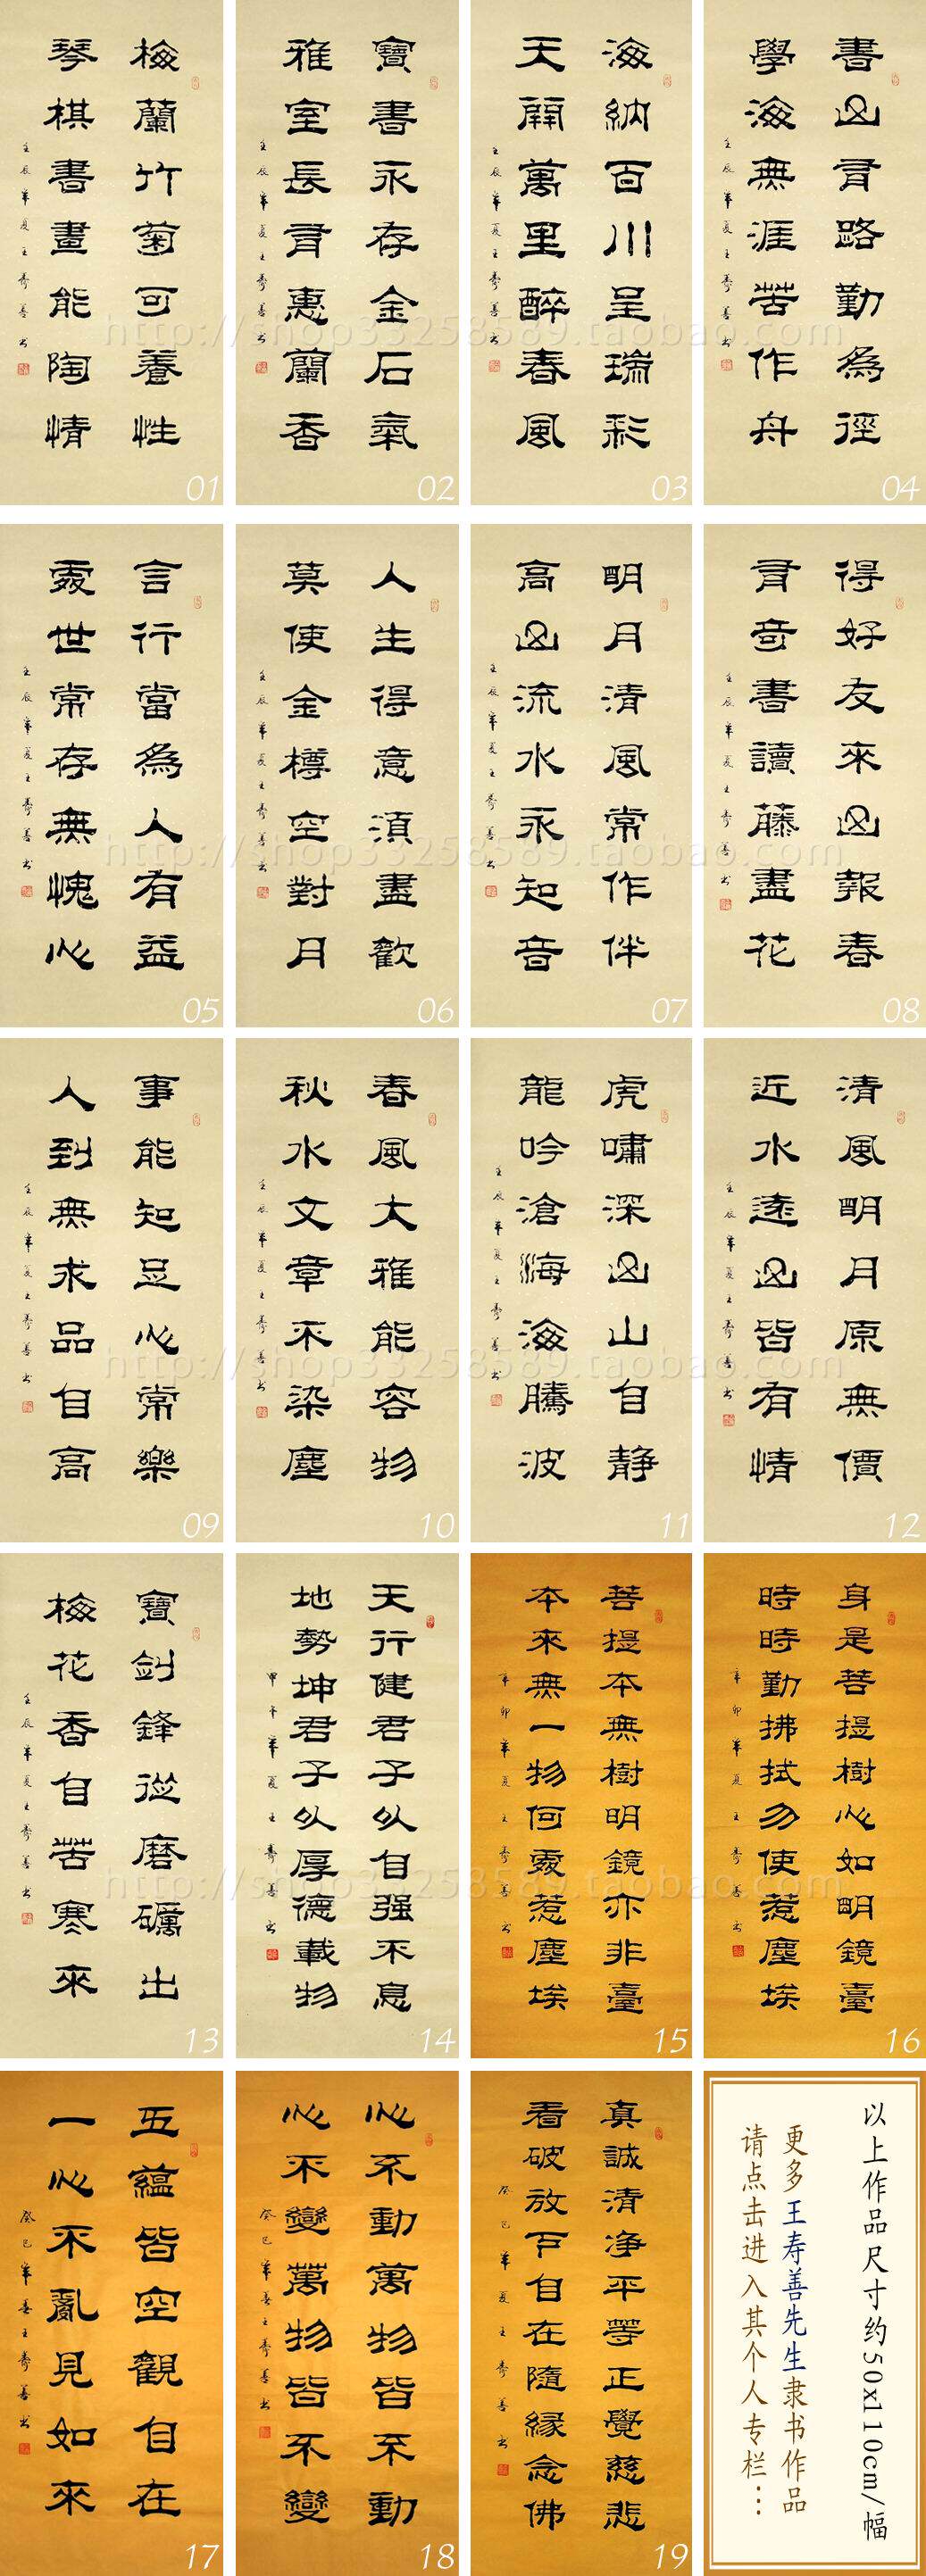 梅蘭竹菊可養性
琴棋書畫能陶情
壬辰年夏王壽善书
01
寶書永存金石氣
雅室長有惠蘭香
壬辰年夏王壽善书
02
海納百川呈瑞彩
天開萬里醉春風
壬辰年夏王壽善书
03
書山有路勤為徑
學海無涯苦作舟
壬辰年夏王壽善书
04
言行當為人有益
處世常存無愧心
壬辰年夏王壽善书
05
人生得意須盡歡
莫使金樽空對月
壬辰年夏王壽善书
06
明月清風常作伴
高山流水永知音
壬辰年夏王壽善书
07
得好友來山報春
有奇書讀藤盡花
壬辰年夏王壽善书
08
事能知足心常樂
人到無求品自高
壬辰年夏王壽善书
09
春風大雅能容物
秋水文章不染塵
壬辰年夏王壽善书
10
虎嘯深山山自静
龍吟滄海海騰波
壬辰年夏王壽善书
11
清風明月原無價
近水遠山皆有情
壬辰年夏王壽善书
12
寶劍鋒從磨礪出
梅花香自苦寒來
壬辰年夏王壽善书
13
天行健君子以自强不息
地勢坤君子以厚德載物
甲午年夏王壽善书
14
菩提本無樹明鏡亦非臺
本來無一物何處惹塵埃
辛卯年夏王壽善书
15
身是菩提樹心如明鏡臺
時時勤拂拭勿使惹塵埃
辛卯年夏王壽善书
16
五蘊皆空觀自在
一心不亂見如來
癸巳年春王壽善书
17
心不動萬物皆不動
心不變萬物皆不變
癸巳年春王壽善书
18
真誠清净平等正覺慈悲
看破放下自在隨緣念佛
癸巳年夏王壽善书
19
以上作品尺寸约50x110cm/幅
更多王寿善先生隶书作品
请点击进入其个人专栏…
http://shop33258589.taobao.com
http://shop33258589.taobao.com
http://shop33258589.taobao.com
http://shop33258589.taobao.com